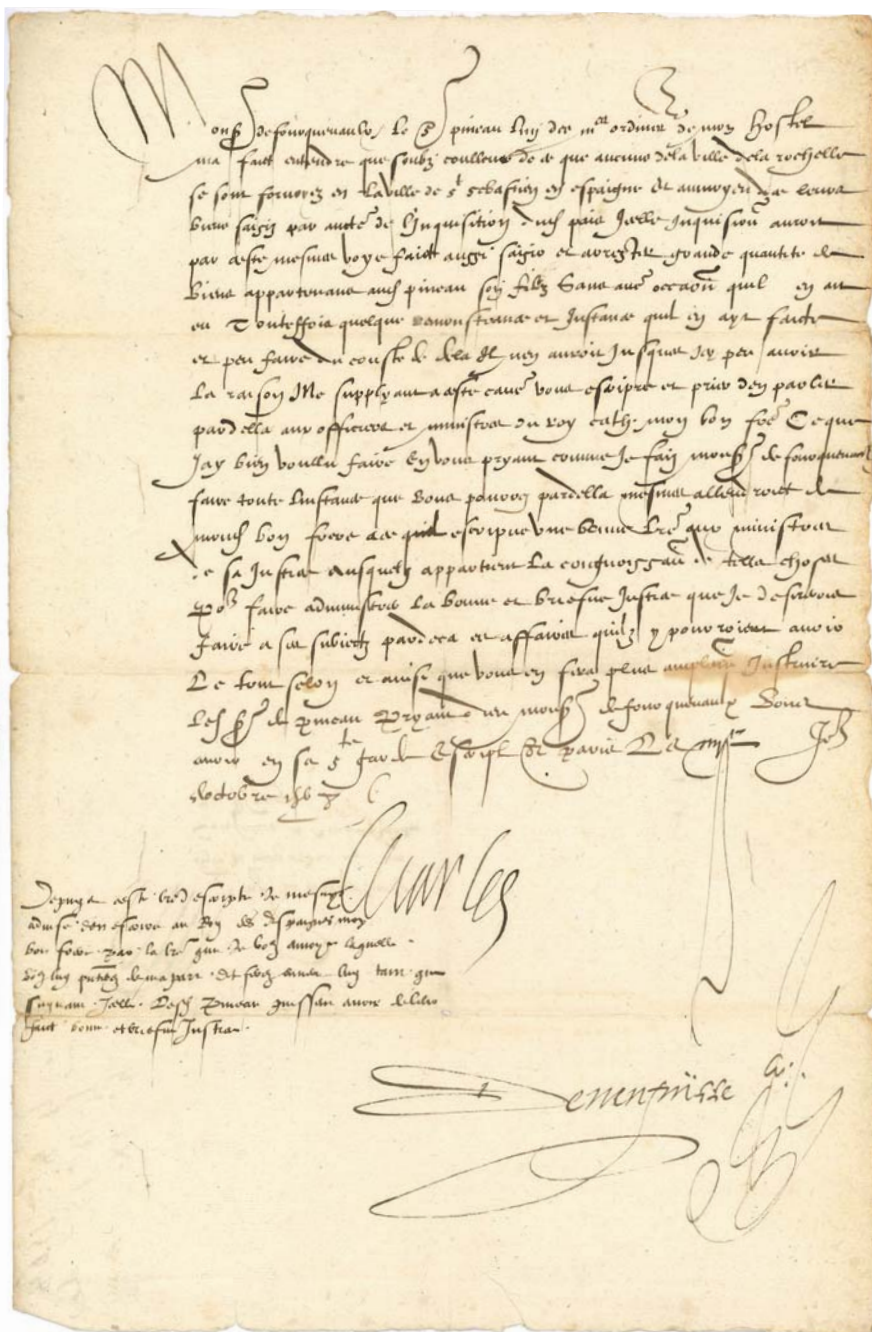 Mons^r de fourquevaulx, le S^r pineau lung des m^es ordin^res de mon hostel
ma faict entendre que soubz coulleur de ce que aucuns de la ville de la rochelle
se sont fourvoiez en la ville de s^t sebastien en espaigne et au moyen de ce leurs
biens saisiz par aucte de linquisition dud pais Icelle Inquision auroit
par ceste mesmes voye faict aussi saisir et arrester grande quantite de
biens appartenans aud pineau son filz sans auc^e occaon quil en ait
eu Touteffois quelque remonstrance et Instance quil en ayt faicte
et peu faire du couste de dela Il nen auroit Jusques Icy peu avoir
la raison Me supplyant a ceste cause vous escripre et prier den parler
pardella aux officiers et ministres du roy cath. mon bon frere Ce que
Jay bien voullu faire En vous pryant comme Je fais mons^r de fourquevaulx
faire toute linstance que vous pourrez pardella mesmes allendroict de
mond bon frere a ce quil escripve une bonne lre aux ministres
de sa Justice ausquelz appartient la congnoissan^ce de telles choses
po^r faire administrer la bonne et briefve Justice que Je desirerois
faire a ses subiectz pardeca es affaires quilz y pourroient avoir
Le tout selon et ainsi que vous en sera plus amplem^t Instruire
led S^r de pineau Pryant dieu mons^r de fourquevaulx vous
avoir en sa s^te garde Escript a paris Le Jo^r
doctobre 1567
Charles
Depuys ceste lre escripte Je me suys
advise den escrire au Roy despaignes mon
bon frere par la lre que Je vous envoye laquelle
vous luy pnterez de ma part et ferez envers luy tant que
suyvant Icelle led pineau puissan avoir de luy
faict bonne et briefve Justice.
Deneufville